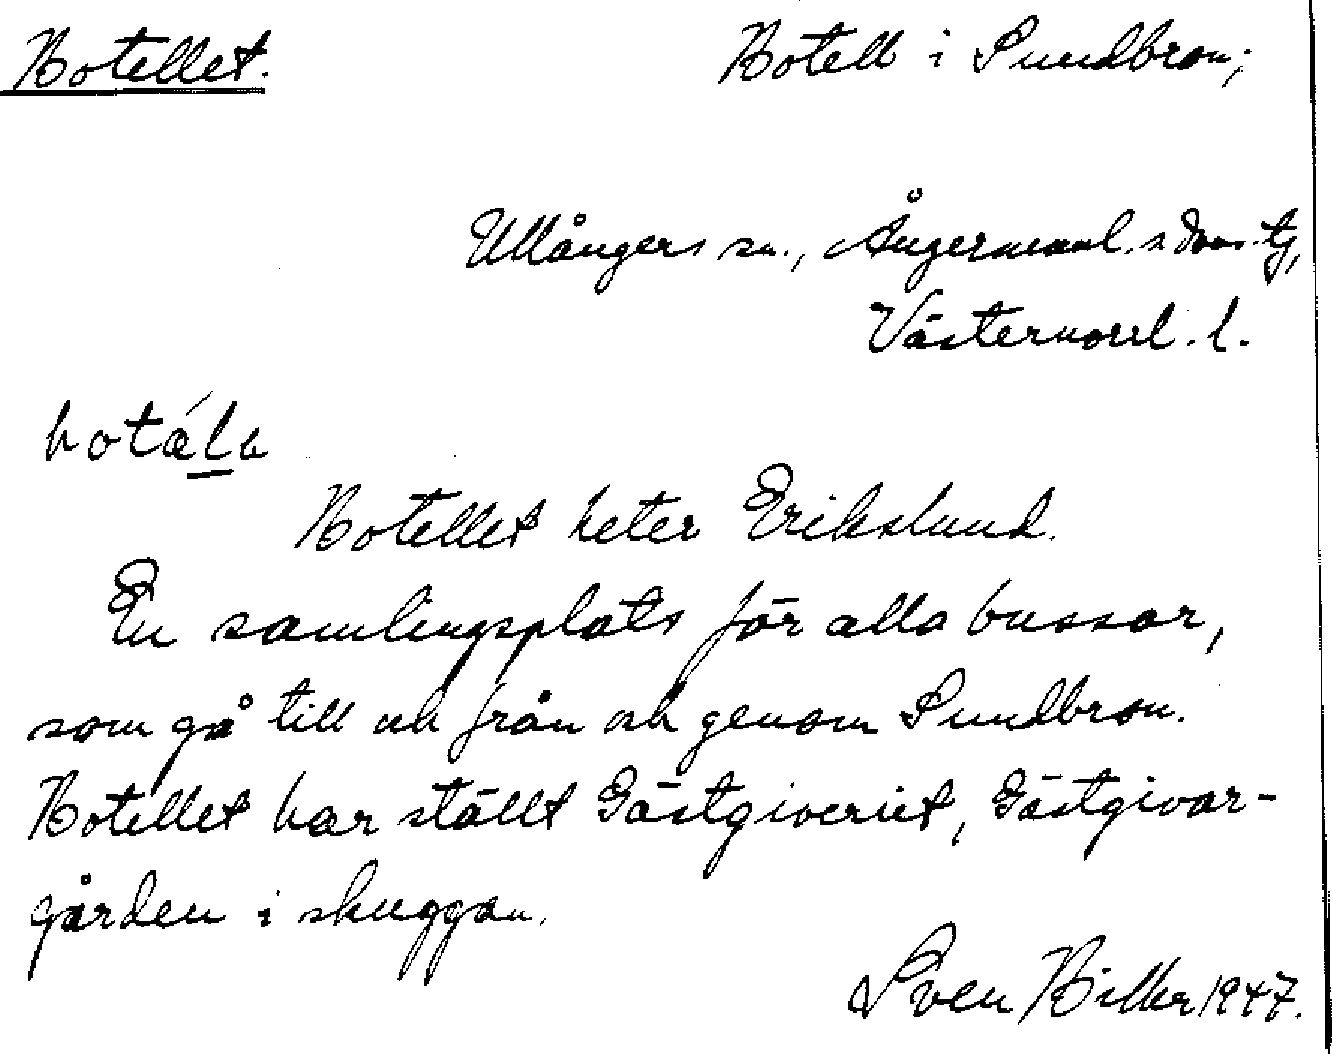 Hotellet.
Hotell i Sundbron;
Ullångers sn., Ångermanl. s doms. tg,
Västernorrl. l.
hotǽlə
Hotellet heter Erikslund.
En samlingsplats för alla bussar,
som gå till och från och genom Sundbron.
Hotellet har ställt Gästgiveriet, Gästgivar-
gården i skuggan.
Sven 1947.